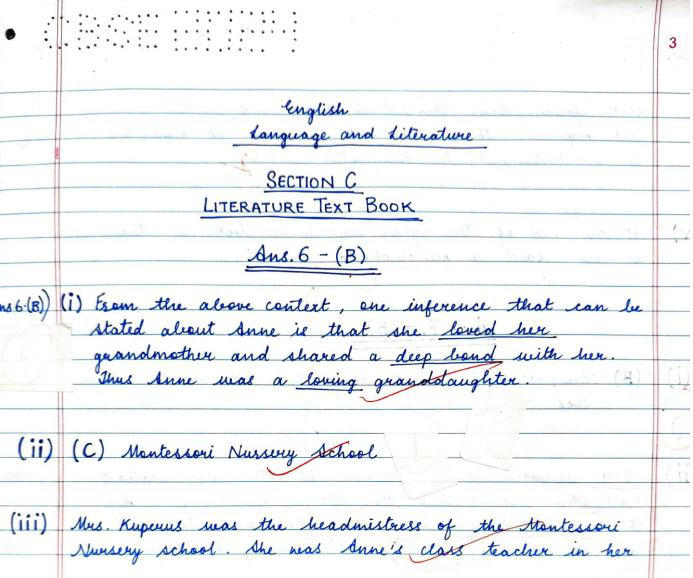 CBSE
3
English
Language and Literature
SECTION C
LITERATURE TEXT BOOK
Ans. 6 - (B)
ns 6.(B)) (i) From the above context, one inference that can be
stated about Anne is that she loved her
grandmother and shared a deep bond with her.
Thus Anne was a loving granddaughter.
(ii) (C) Montessori Nursery School
(iii) Mrs. Kuperus was the headmistress of the Montessori
Nursery school. She was Anne's class teacher in her